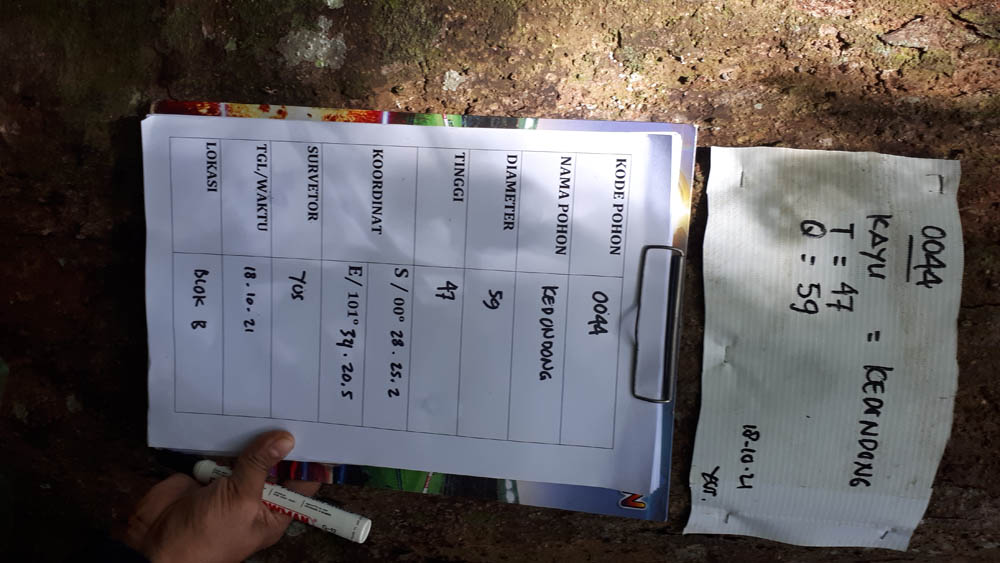 0044
KAYU = KEDONDONG
T = 47
Q = 59
18-10-21
KODE POHON 0044
NAMA POHON KEDONDONG
DIAMETER 59
TINGGI 47
KOORDINAT S / 00° 28. 25. 2
E/ 101° 34. 20.5
SURVETOR YUS
TGL/WAKTU 18-10-21
LOKASI BLOK B